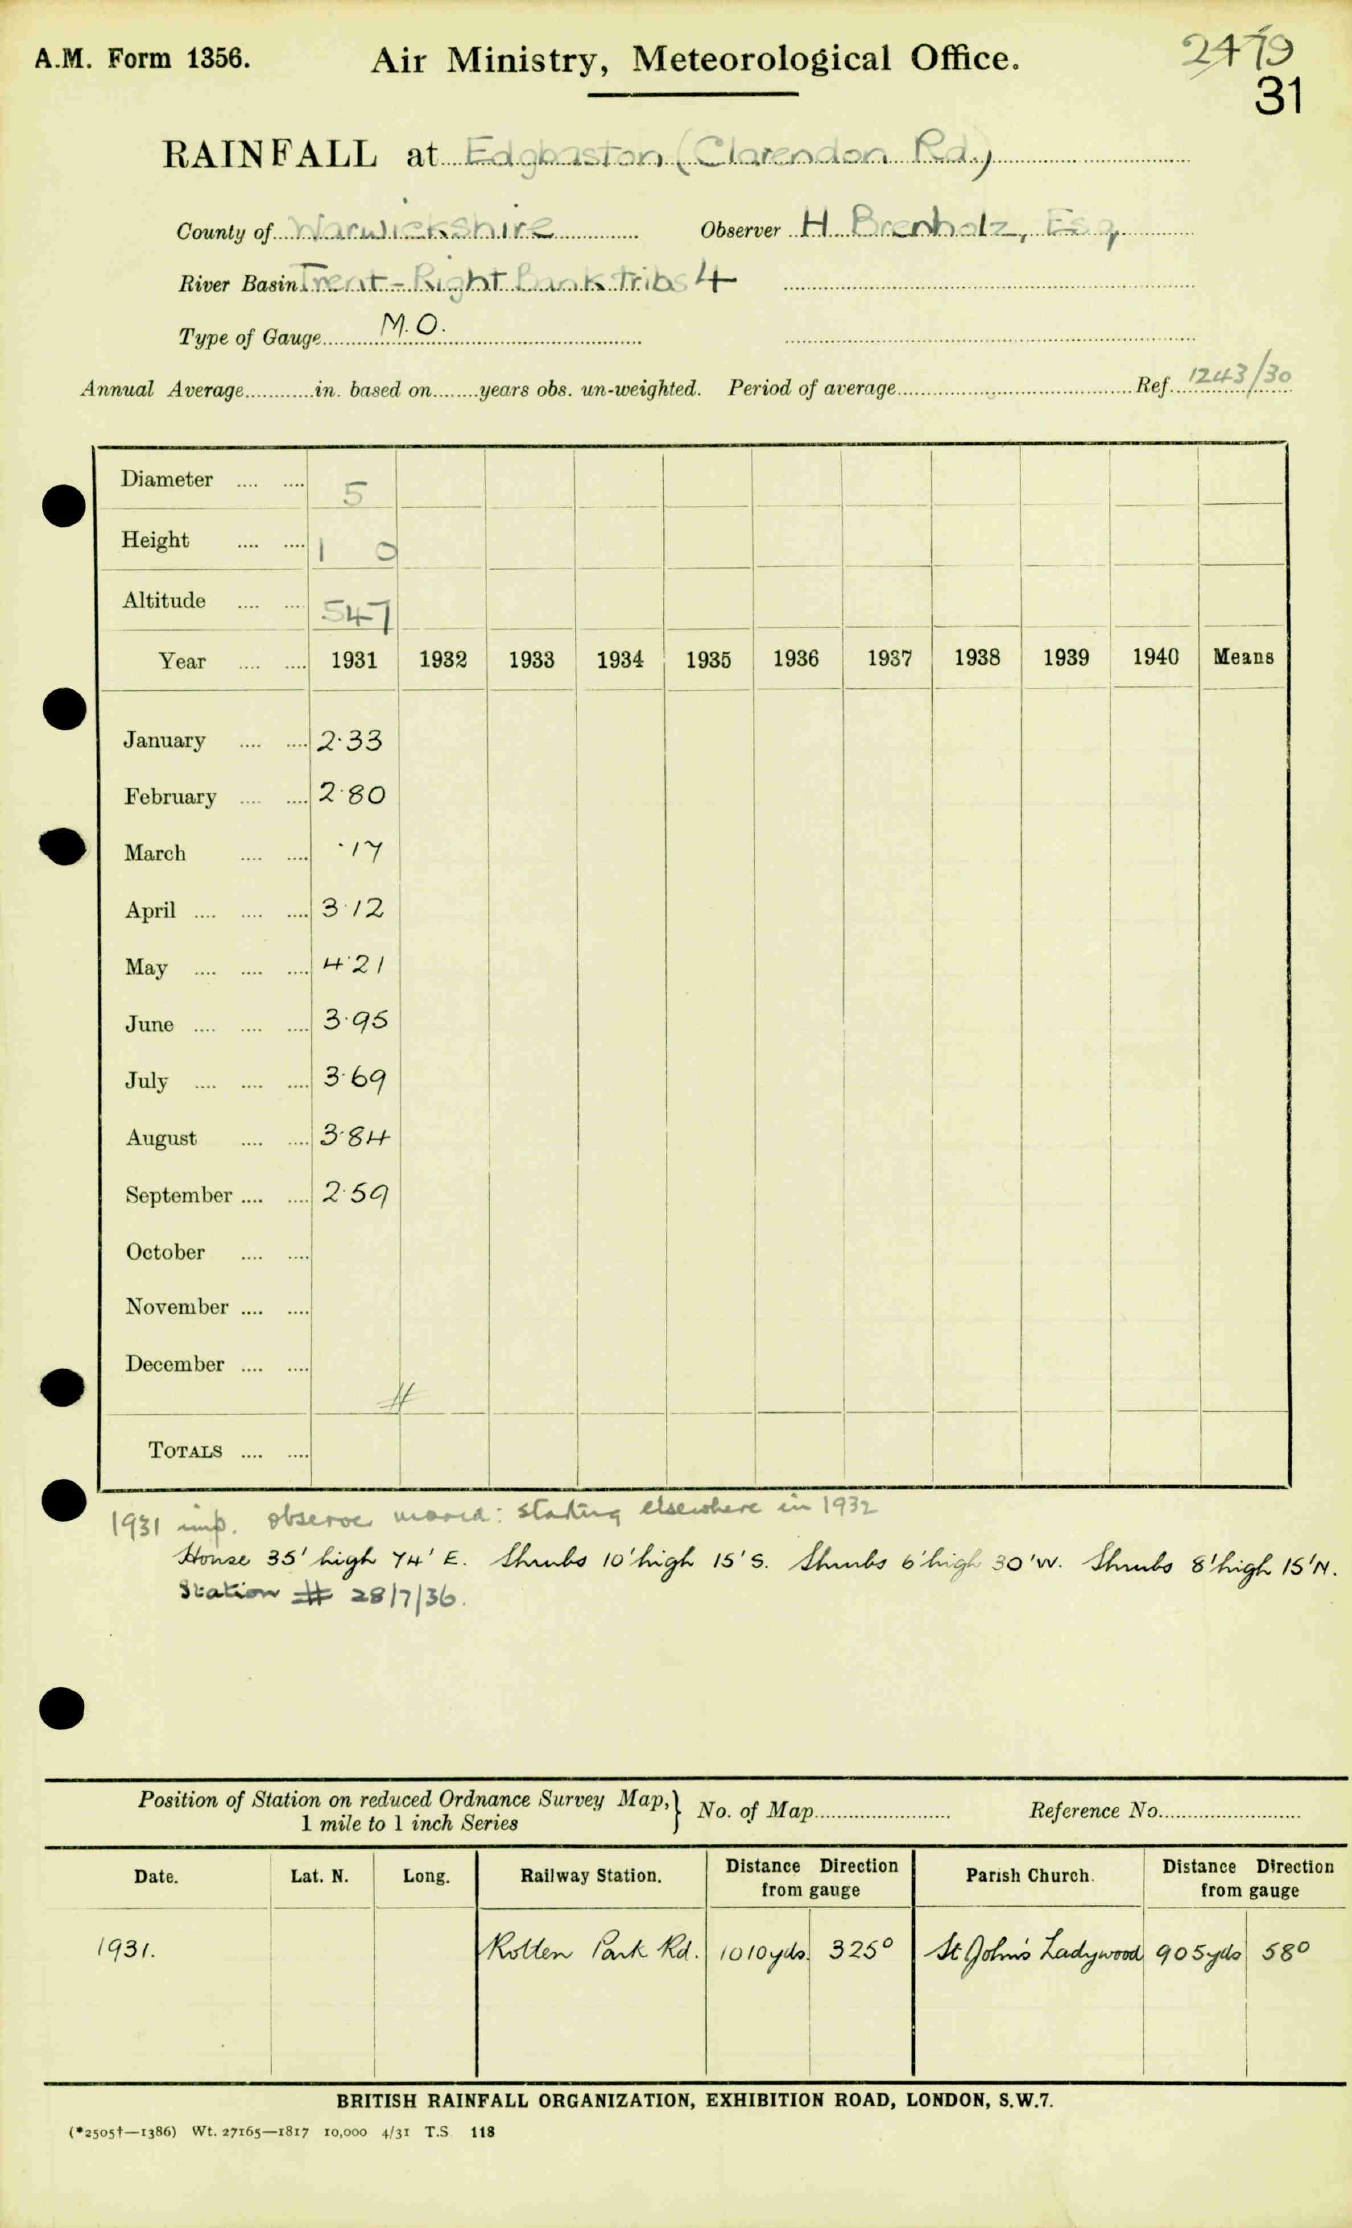 A.M. Form 1356. Air Ministry, Meteorological Office. 2479
31
RAINFALL at Edgbaston (Clarendon Rd.)
County of Warwickshire Observer H. Brenholz, Esq,
River Basin Trent - Right Bank Tribs 4
Type of Gauge M.O.
Annual Average in. based on years obs. un-weighted. Period of average Ref. 1243/30
Diameter 5
Height 1 0
Altitude 547
Year 1931 1932 1933 1934 1935 1936 1937 1938 1939 1940 Means
January 2.33
February 2.80
March .17
April 3.12
May 4.21
June 3.95
July 3.69
August 3.84
September 2.59
October
November
December
#
TOTALS
1931 imp. observer moved: starting elsewhere in 1932
House 35' high 74' E. Shrubs 10' high 15' S. Shrubs 6' high 30' W. Shrubs 8' high 15' N.
Station # 28/7/36.
Position of Station on reduced Ordnance Survey Map, } No. of Map Reference No.
1 mile to 1 inch Series
Date. Lat. N. Long. Railway Station. Distance Direction from gauge Parish Church. Distance Direction from gauge
1931. Rotten Park Rd. 1010yds. 325° St John's Ladywood 905yds 58°
BRITISH RAINFALL ORGANIZATION, EXHIBITION ROAD, LONDON, S.W.7.
(*2505†—1386) Wt. 27165—1817 10,000 4/31 T.S. 118